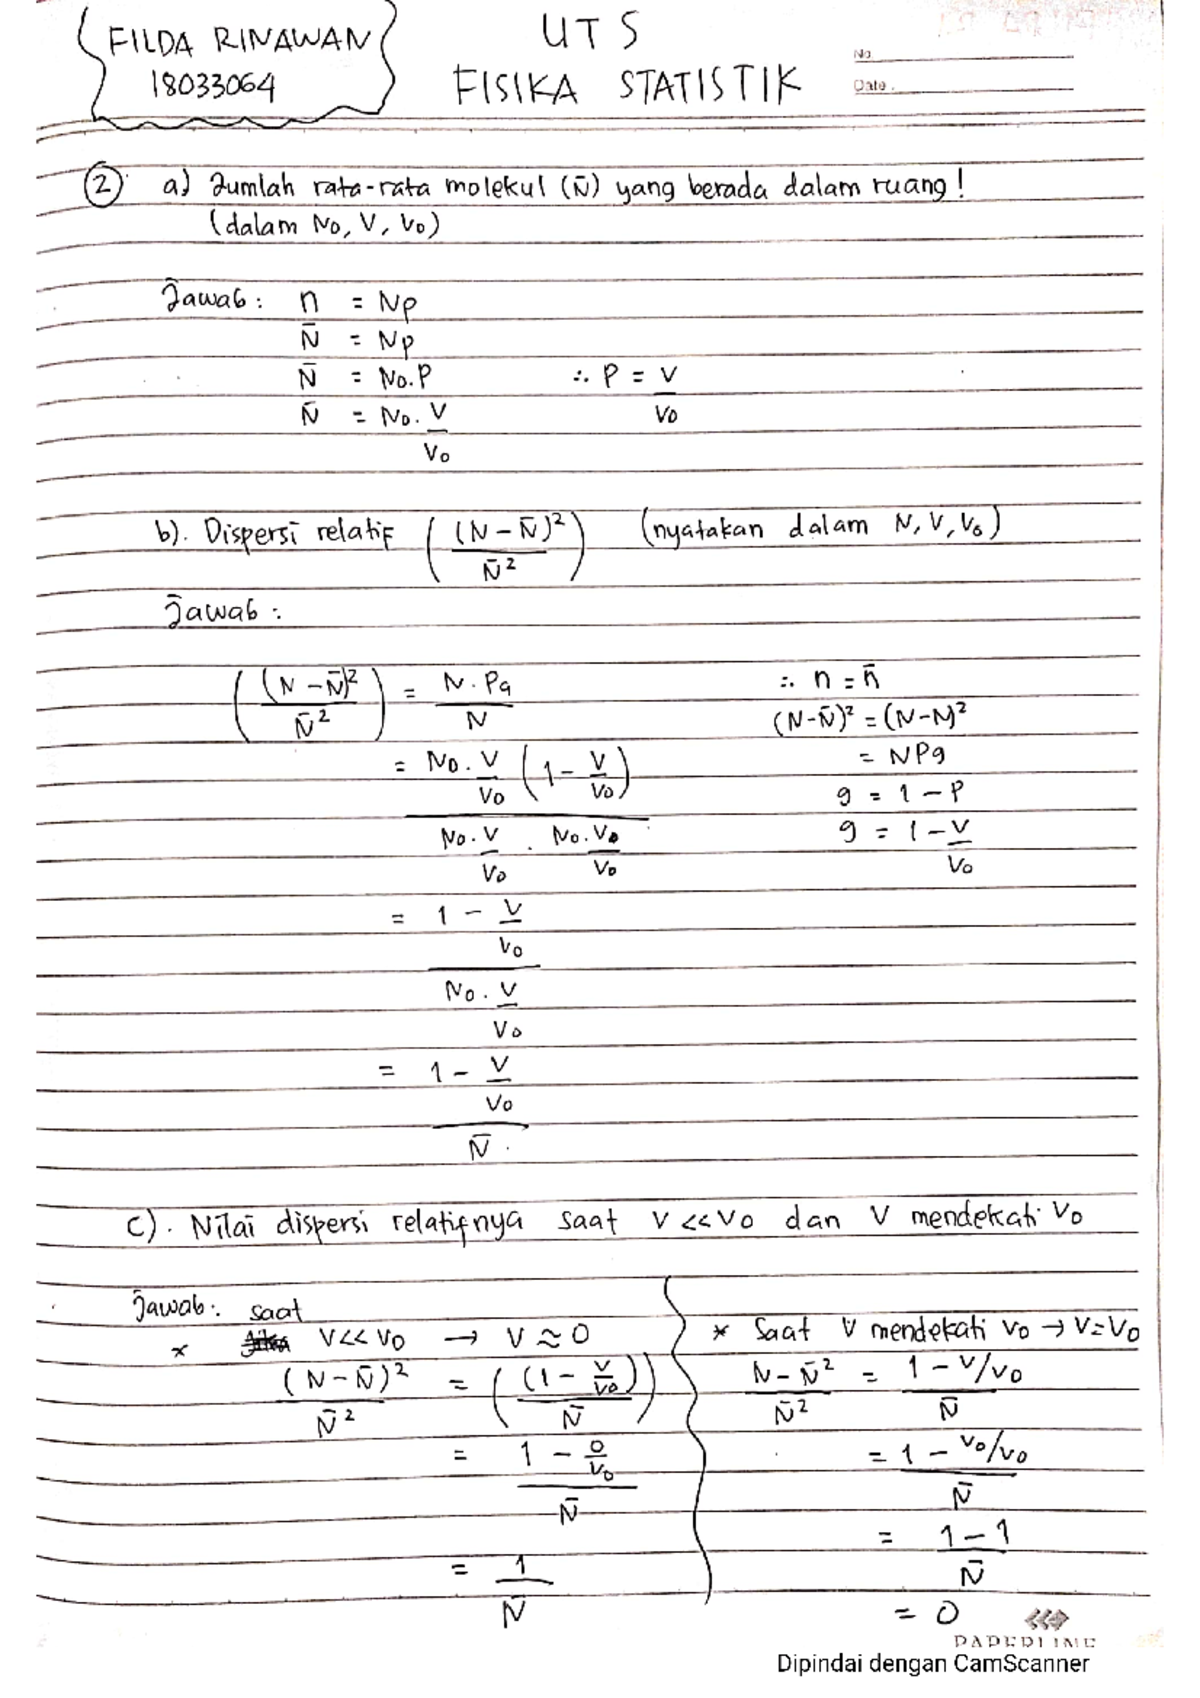 FILDA RINAWAN
18033064
UTS
FISIKA STATISTIK
No.
Date.
② a) Jumlah rata-rata molekul (N̄) yang berada dalam ruang!
(dalam No, V, Vo)
Jawab: n = Np
N̄ = Np
N̄ = No.P ∴ P = V/Vo
N̄ = No. V/Vo
b). Dispersi relatif ((N-N̄)²/N̄²) (nyatakan dalam N, V, Vo)
Jawab:
((N-N̄)²/N̄²) = N.Pq/N
∴ n = n̄
(N-N̄)² = (N-N)²
= No. V/Vo (1 - V/Vo) / No. V/Vo . No. Vo/Vo
= NPq
q = 1 - P
q = 1 - V/Vo
= 1 - V/Vo / No. V/Vo
= 1 - V/Vo / N̄.
c). Nilai dispersi relatifnya saat V << Vo dan V mendekati Vo
Jawab: saat
* V << Vo → V ≈ 0
(N-N̄)²/N̄² = ((1 - V/Vo)/N̄)
= 1 - 0/Vo / N̄
= 1/N̄
* Saat V mendekati Vo → V = Vo
N-N̄²/N̄² = 1 - V/Vo / N̄
= 1 - Vo/Vo / N̄
= 1 - 1 / N̄
= 0
PAPERLINE
Dipindai dengan CamScanner